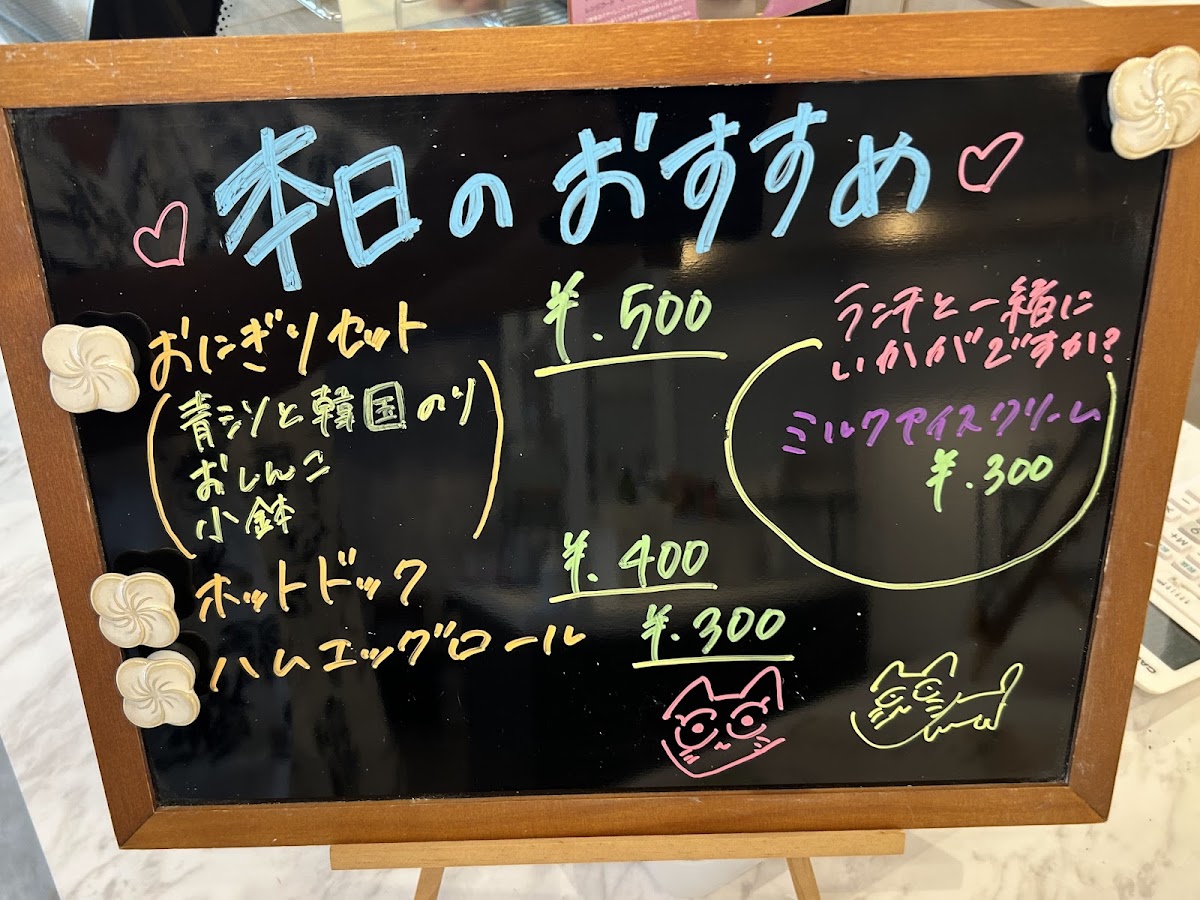 本日のおすすめ
おにぎりセット ¥.500
(青シソと韓国のり
おしんこ
小鉢)
ホットドック ¥.400
ハムエッグロール ¥.300
ランチと一緒に
いかがですか?
ミルクアイスクリーム
¥.300